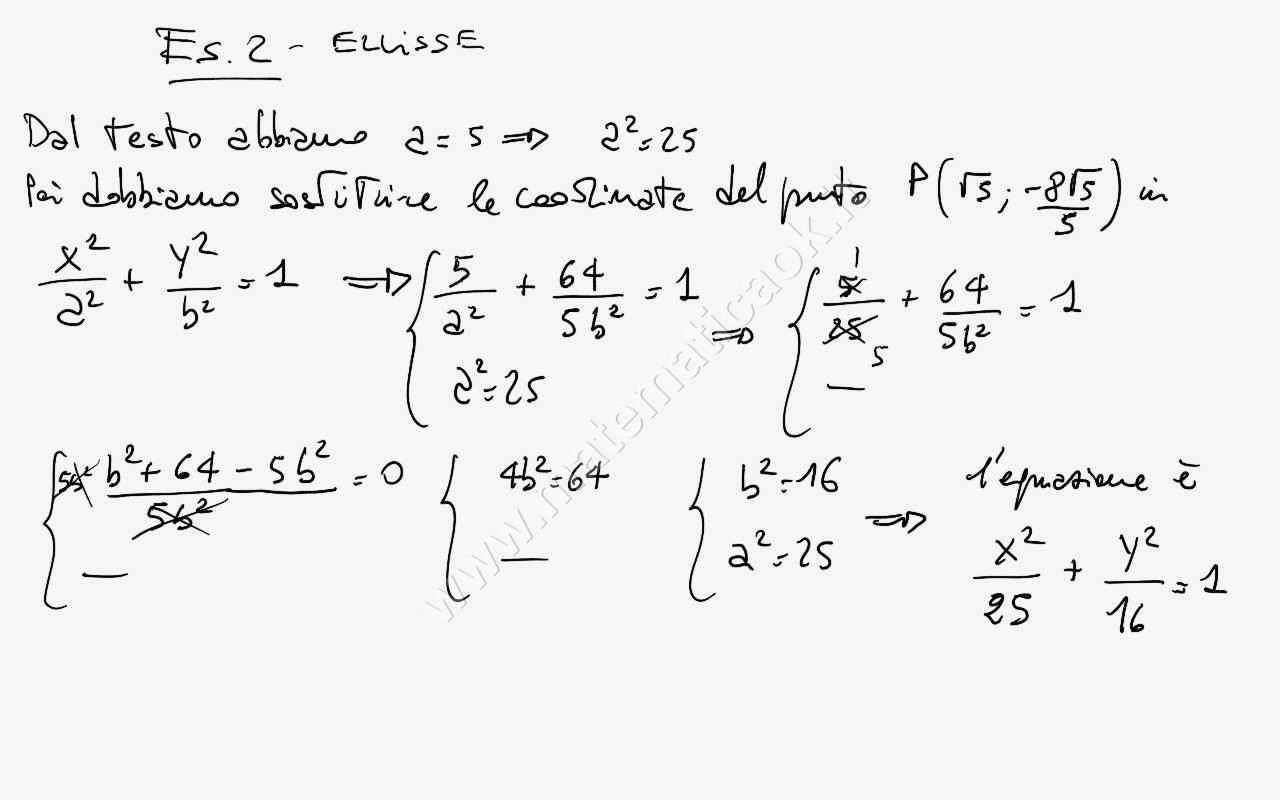 Es. 2 - ELLISSE
Dal testo abbiamo a = 5 ⇒ a² = 25
Poi dobbiamo sostituire le coordinate del punto P(√5 ; -8√5/5) in
x²/a² + y²/b² = 1 ⇒ { 5/a² + 64/5b² = 1 ; a² = 25 ⇒ { 5/25 1/5 + 64/5b² = 1 ; —
{ 5b² (b² + 64 - 5b²)/5b² = 0 ; — { 4b² = 64 ; — { b² = 16 ; a² = 25 ⇒ l'equazione è
x²/25 + y²/16 = 1
www.matematicaok.it